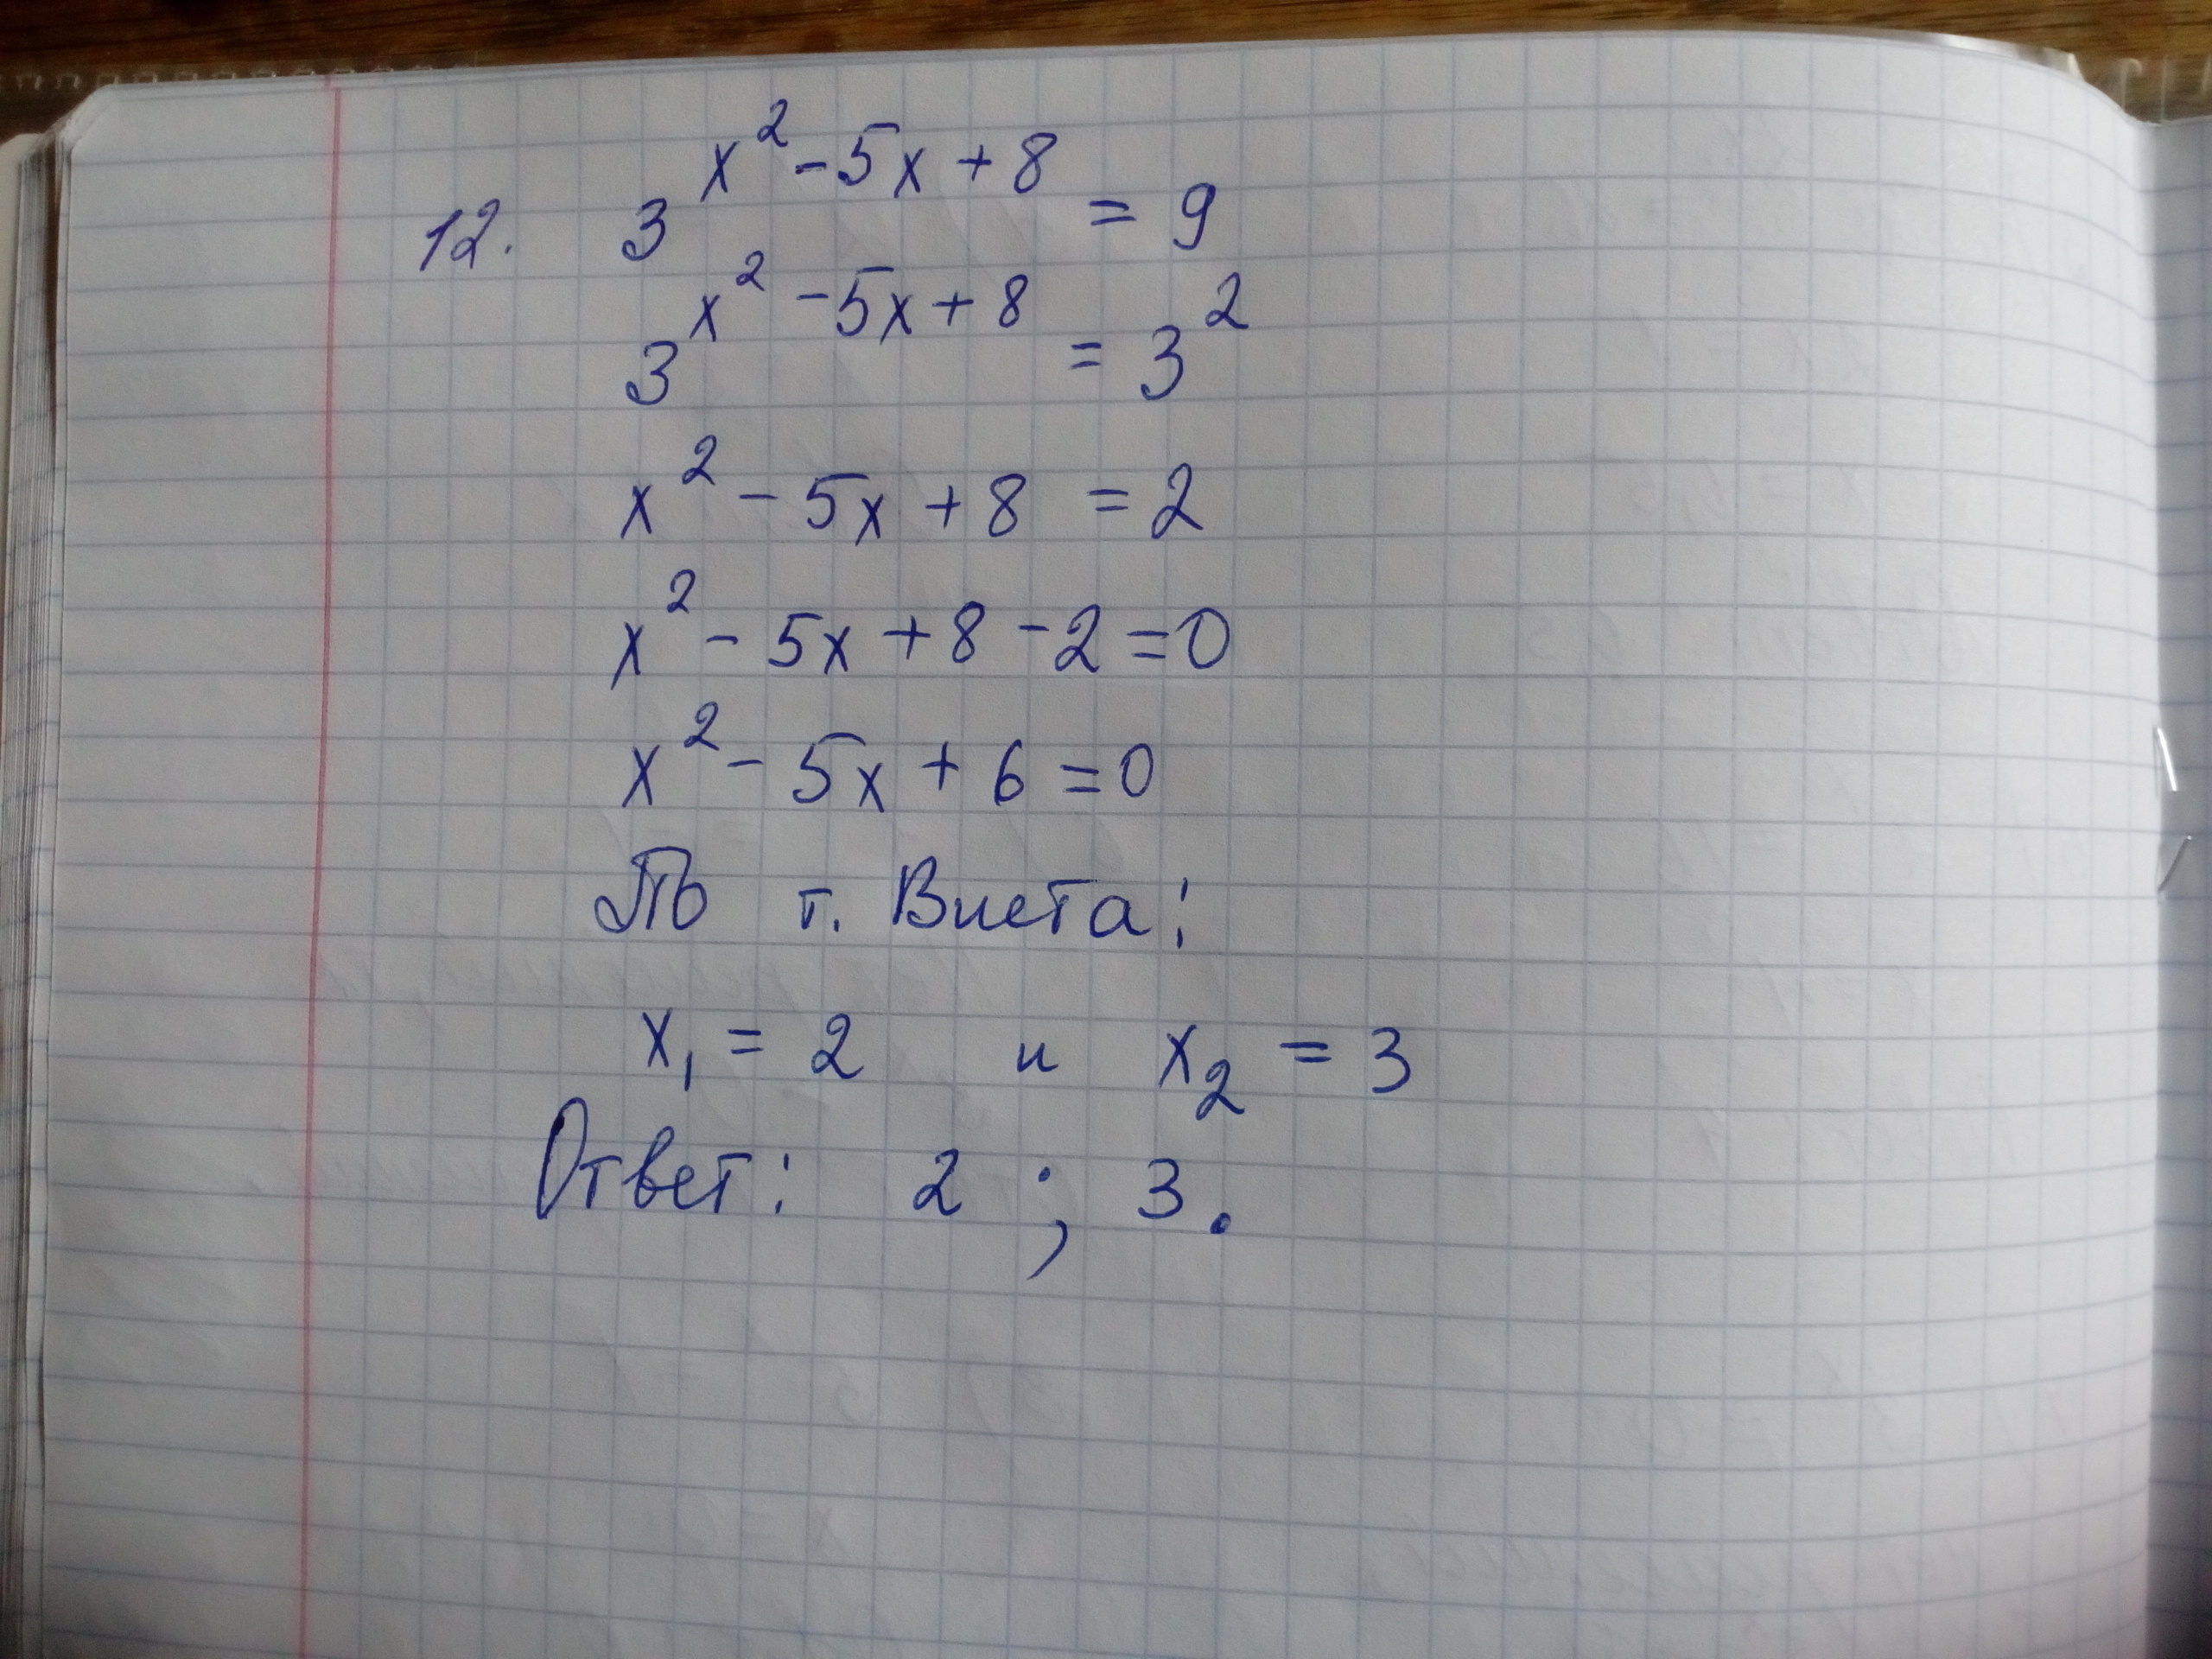 12. 3^(x² - 5x + 8) = 9
3^(x² - 5x + 8) = 3²
x² - 5x + 8 = 2
x² - 5x + 8 - 2 = 0
x² - 5x + 6 = 0
По т. Виета:
x₁ = 2 и x₂ = 3
Ответ: 2 ; 3.